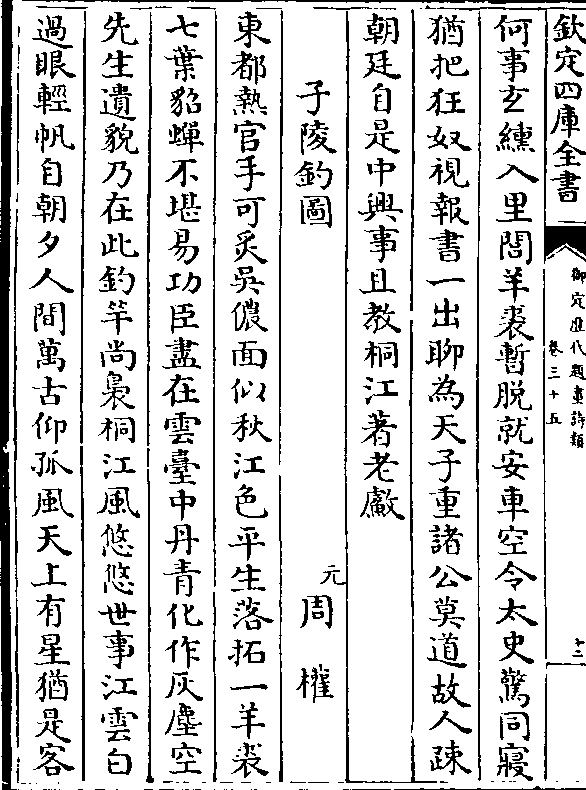 欽定四庫全書
御定歷代題畫詩類
卷三十五
十三
何事玄纁入里閭羊裘暫脫就安車空令太史驚同寢
猶把狂奴視報書一出聊為天子重諸公莫道故人疎
朝廷自是中興事且教桐江著老㪺
子陵釣圖
元周權
東都熱官手可炙吳儂面似秋江色平生落拓一羊裘
七葉貂蟬不堪易功臣盡在雲臺中丹青化作灰塵空
先生遺貌乃在此釣竿尚裊桐江風悠悠世事江雲白
過眼輕帆自朝夕人間萬古仰孤風天上有星猶是客